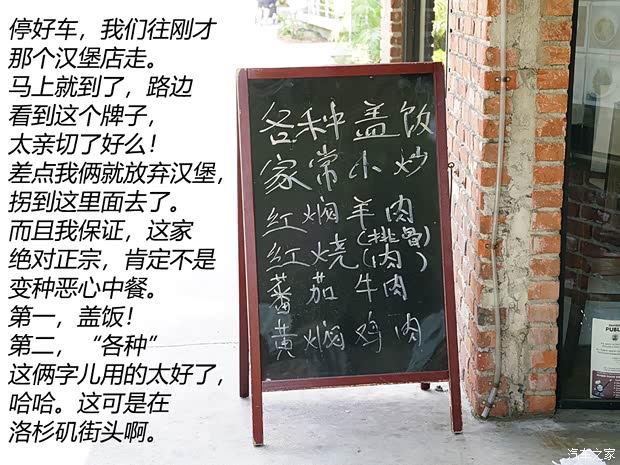 停好车，我们往刚才
那个汉堡店走。
马上就到了，路边
看到这个牌子，
太亲切了好么！
差点我俩就放弃汉堡，
拐到这里面去了。
而且我保证，这家
绝对正宗，肯定不是
变种恶心中餐。
第一，盖饭！
第二，“各种”
这俩字儿用的太好了，
哈哈。这可是在
洛杉矶街头啊。
各种盖饭
家常小炒
红焖羊肉
(排骨)
红烧(肉)
蕃茄牛肉
黄焖鸡肉
PUBL
汽车之家